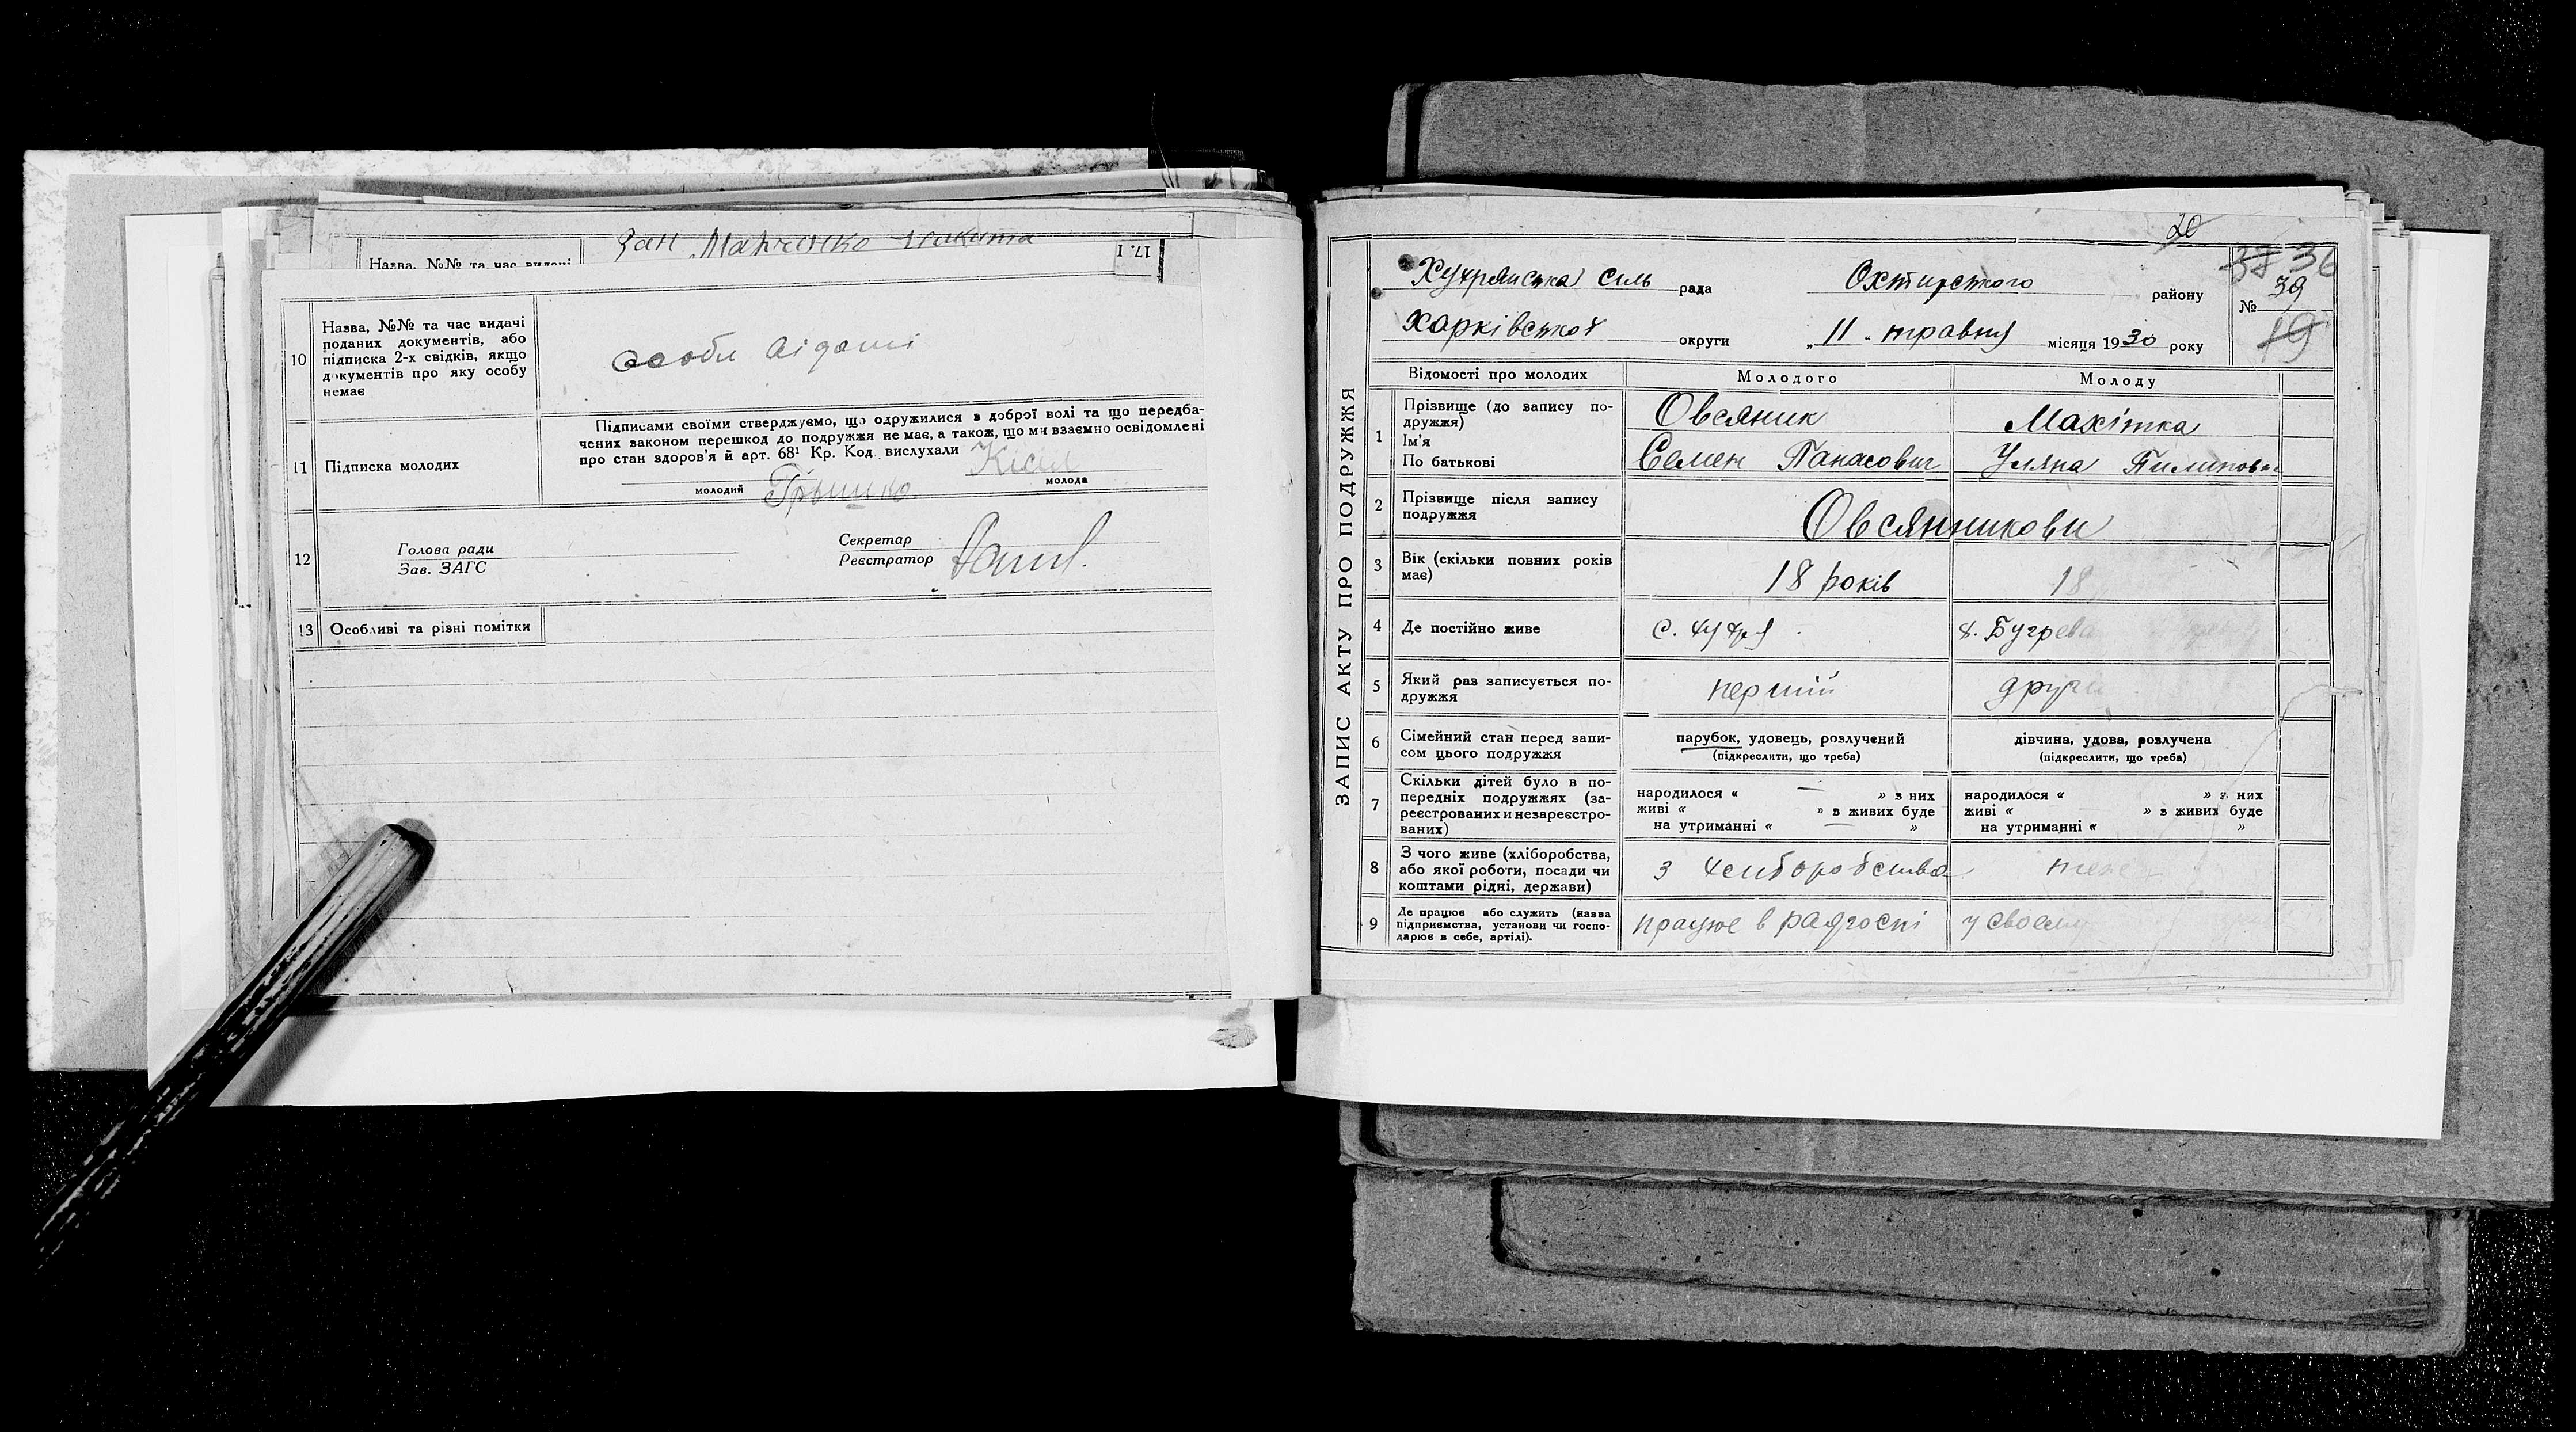 Назва, №№ та час видачі
17. I
10
Назва, №№ та час видачі
поданих документів, або
підписка 2-х свідків, якщо
документів про яку особу
немає
особи відомі
11
Підписка молодих
Підписами своїми стверджуємо, що одружилися в доброї волі та що передба-
чених законом перешкод до подружжя не має, а також, що ми взаємно освідомлені
про стан здоров'я й арт. 68¹ Кр. Код. вислухали
молодий Грышко
молода
12
Голова ради
Зав. ЗАГС
Секретар
Реєстратор
13
Особливі та різні помітки
ЗАПИС АКТУ ПРО ПОДРУЖЖЯ
20
38 36
Хухрянська сіль рада Охтирського району
№ 39
19
Харківської округи „11„ травня місяця 1930 року
Відомості про молодих
Молодого
Молоду
1
Прізвище (до запису по-
дружжя)
Ім'я
По батькові
Овсяник
Семен Панасович
Махітка
Уляна Пилиповн
2
Прізвище після запису
подружжя
Овсянникови
3
Вік (скільки повних років
має)
18 років
18
4
Де постійно живе
с. Хухря
х. Бугрева
5
Який раз записується по-
дружжя
перший
други
6
Сімейний стан перед запи-
сом цього подружжя
парубок, удовець, розлучений
(підкреслити, що треба)
дівчина, удова, розлучена
(підкреслити, що треба)
7
Скільки дітей було в по-
передніх подружжях (за-
реєстрованих и незареєстро-
ваних)
народилося « — » з них
живі « » в живих буде
на утриманні « — »
народилося « » з них
живі « » в живих буде
на утриманні « »
8
З чого живе (хліборобства,
або якої роботи, посади чи
коштами рідні, держави)
з хліборобства
9
Де працює або служить (назва
підприємства, установи чи госпо-
дарює в себе, артілі).
працює в радгоспі
у своєму